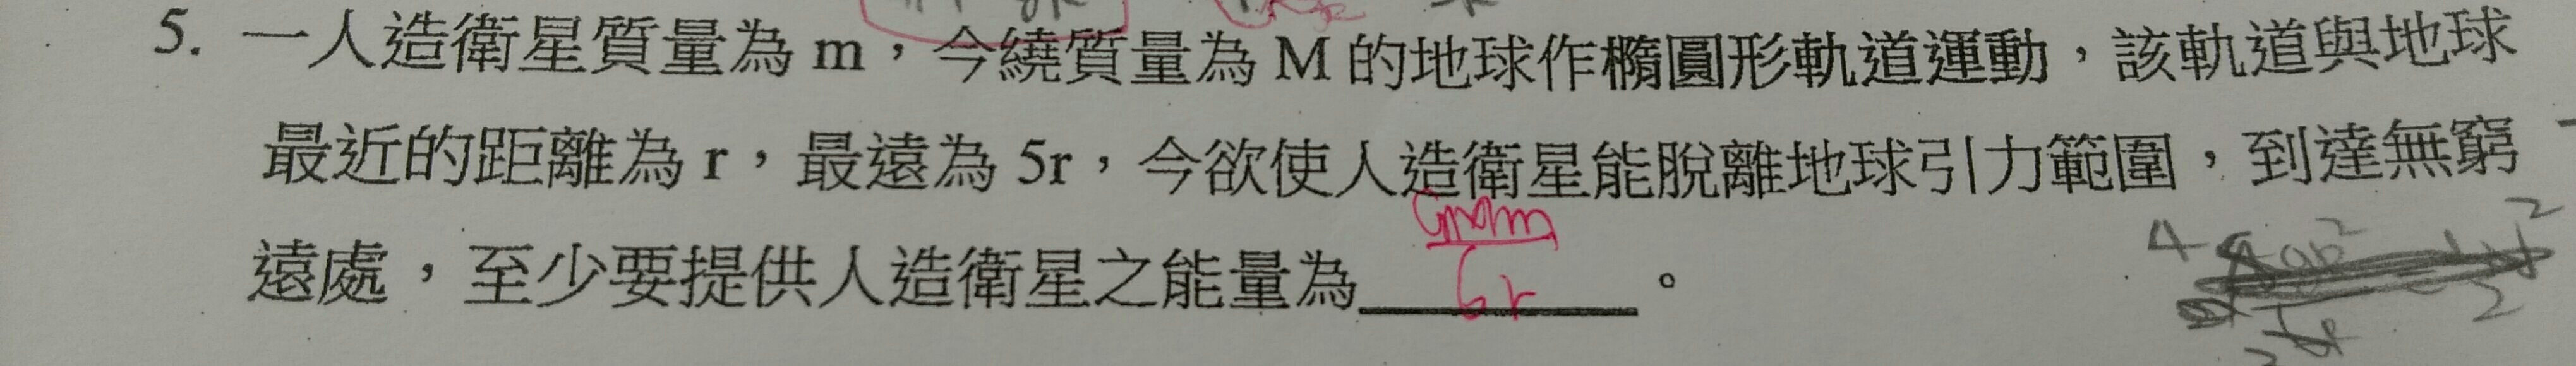 5. 一人造衛星質量為 m，今繞質量為 M 的地球作橢圓形軌道運動，該軌道與地球
最近的距離為 r，最遠為 5r，今欲使人造衛星能脫離地球引力範圍，到達無窮
遠處，至少要提供人造衛星之能量為______。
6r